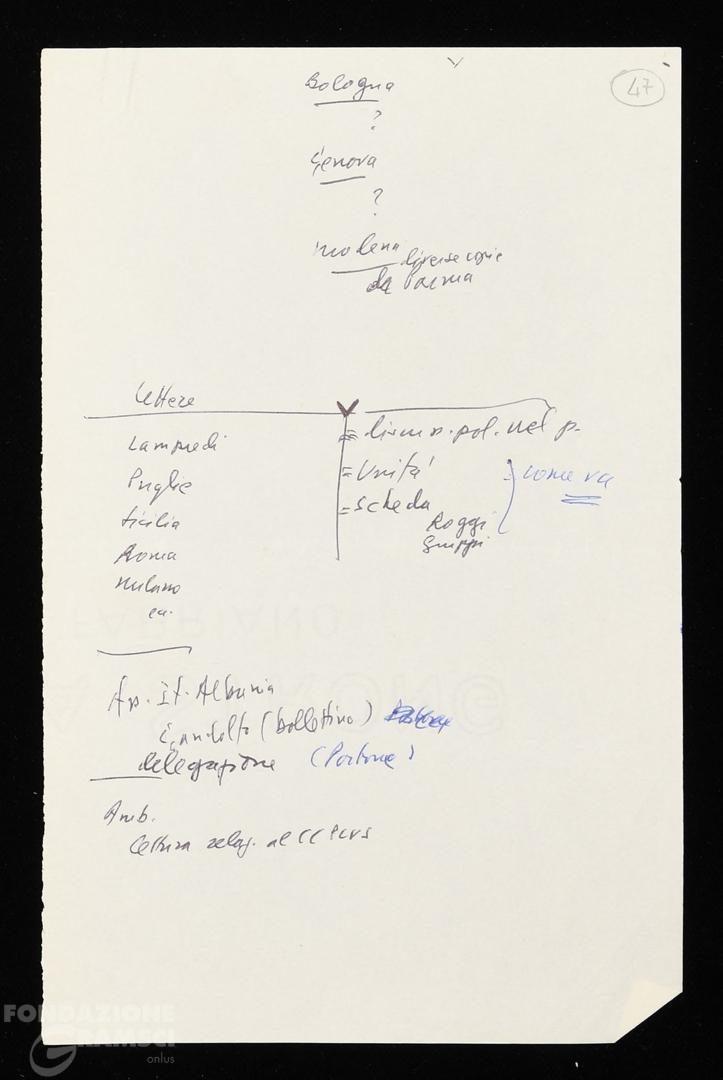 47
Bologna
?
Genova
?
Modena diverse copie
da Parma
Lettere
V
Lampredi
Puglie
Sicilia
Roma
Milano
ecc.
= discuss. pol. nel p.
= Unità
= scheda
Roggi
Gruppi
come va
Ass. It. Albania
Gandolfo (bollettino)
delegazione (Portone)
Amb.
lettura relaz. al CC PCUS
FABRIANO
FONDAZIONE
GRAMSCI
onlus